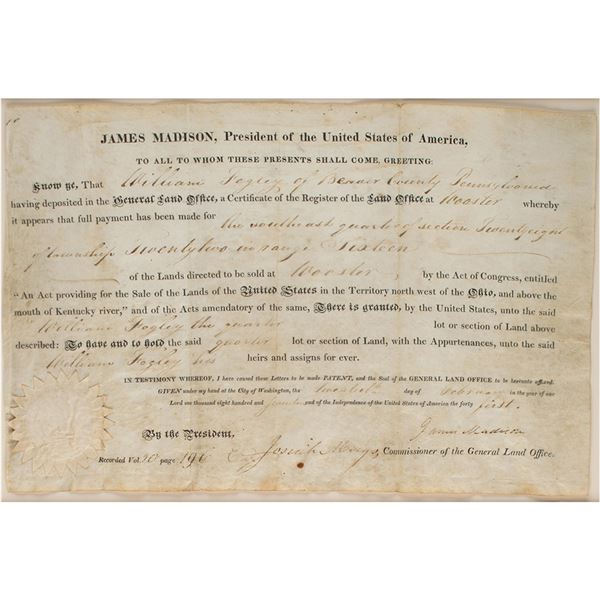 JAMES MADISON, President of the United States of America,
TO ALL TO WHOM THESE PRESENTS SHALL COME, GREETING:
Know ye, That William Fogley of Beaver County Pennsylvania
having deposited in the General Land Office, a Certificate of the Register of the Land Office at Wooster whereby
it appears that full payment has been made for the southeast quarter of section Twenty eight
of township Twenty two in range Sixteen
of the Lands directed to be sold at Wooster by the Act of Congress, entitled
"An Act providing for the Sale of the Lands of the United States in the Territory north west of the Ohio, and above the
mouth of Kentucky river," and of the Acts amendatory of the same, There is granted, by the United States, unto the said
William Fogley the quarter lot or section of Land above
described: To have and to hold the said quarter lot or section of Land, with the Appurtenances, unto the said
William Fogley his heirs and assigns for ever.
IN TESTIMONY WHEREOF, I have caused these Letters to be made PATENT, and the Seal of the GENERAL LAND OFFICE to be hereunto affixed.
GIVEN under my hand at the City of Washington, the day of February in the year of our
Lord one thousand eight hundred and and of the Independence of the United States of America the forty first.
James Madison
By the President,
Josiah Meigs Commissioner of the General Land Office.
Recorded Vol. page